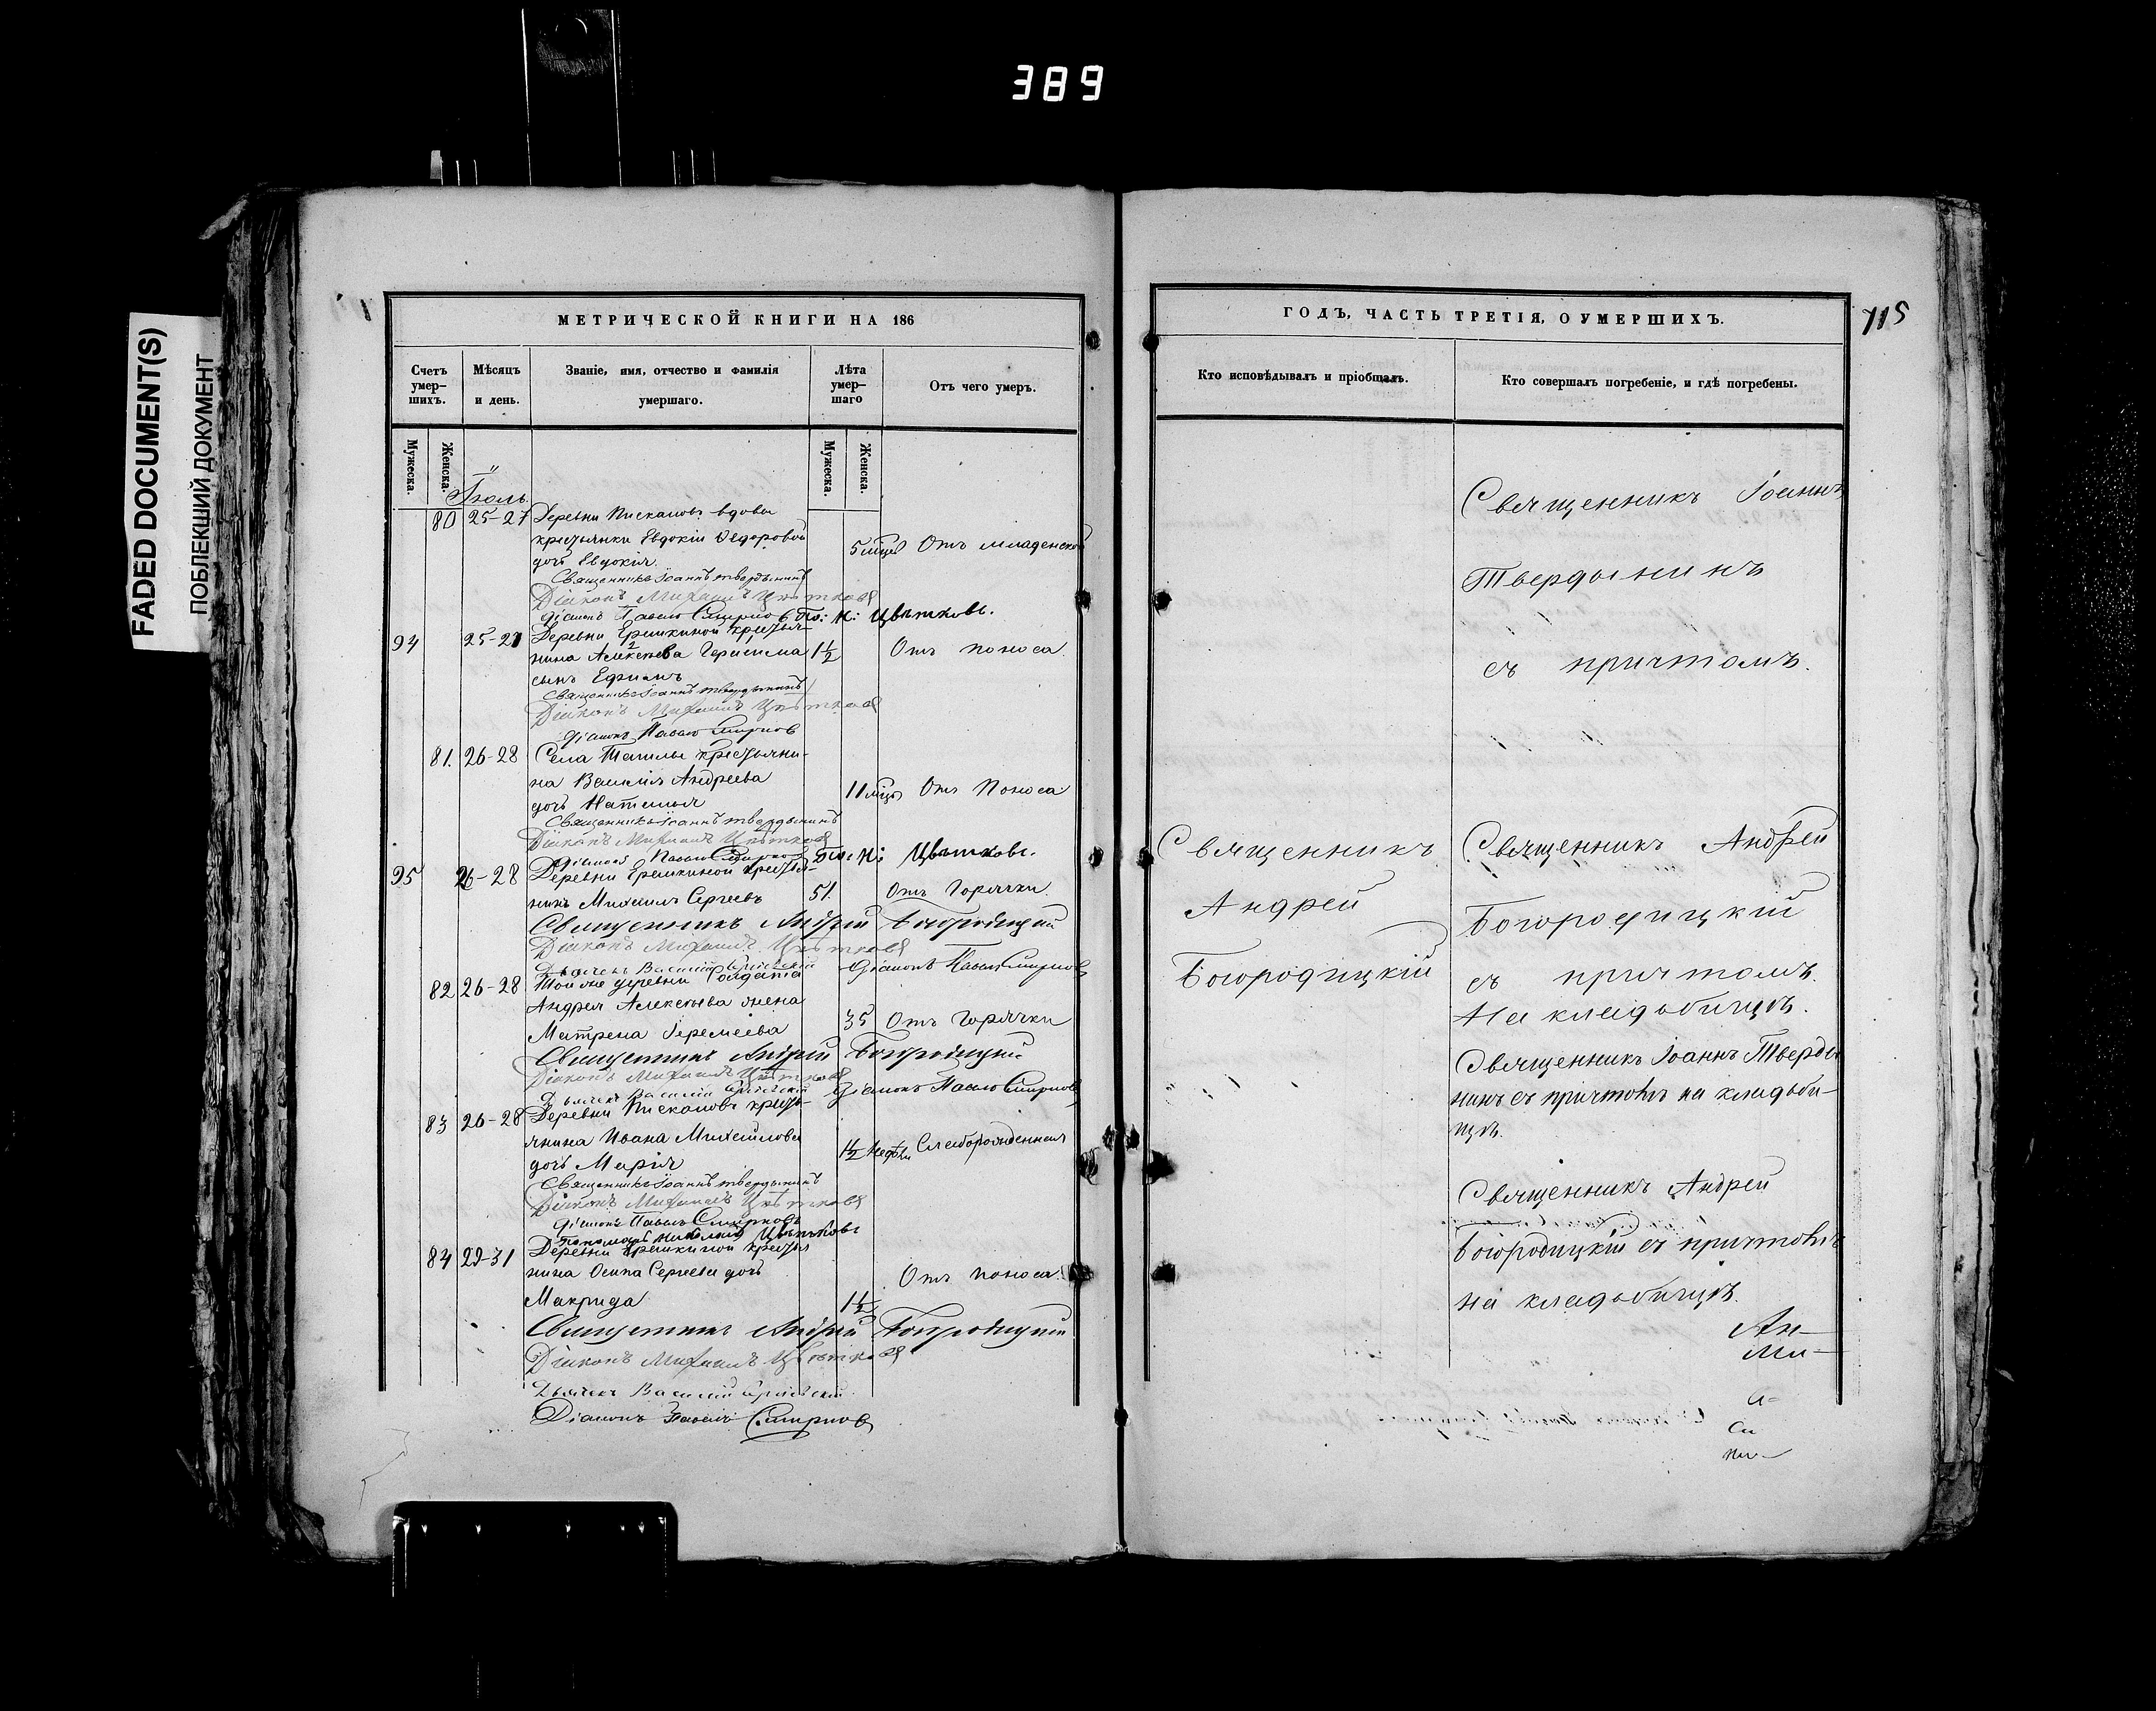 389
FADED DOCUMENT(S)
ПОБЛЕКШИЙ ДОКУМЕНТ
МЕТРИЧЕСКОЙ КНИГИ НА 186
Счетъ умер-шихъ.
Мужеска.
Женска.
Мѣсяцъ и день.
Званіе, имя, отчество и фамилія умершаго.
Лѣта умер-шаго
Мужеска.
Женска.
Отъ чего умеръ.
Іюль.
80 25-27 Деревни Пискаловъ вдовы
крестьянки Евдокіи Ѳедоровой
дочь Евдокія. 5 мѣсц Отъ младенской
Священникъ Іоаннъ Твердынинъ
Діаконъ Михаилъ Цвѣтковъ
Діаконъ Павелъ Смирновъ По: Н: Цвѣтковъ.
94 25-27 Деревни Ерешкиной крестья-
нина Алексѣева Герасима 1½ Отъ поноса
сынъ Ефимъ
Священникъ Іоаннъ Твердынинъ
Діаконъ Михаилъ Цвѣтковъ
Діаконъ Павелъ Смирнов
81. 26-28 Села крестьяни-
на Василія Андреева
дочь Наталья 11 мѣсц Отъ Поноса
Священникъ Іоаннъ Твердынинъ
Діаконъ Михаилъ Цвѣтковъ
Діаконъ Павелъ Смирнов По: Н: Цвѣтковъ.
95 26-28 Деревни Ерешкиной крестья-
нинъ Михаилъ Сергеевъ 51. Отъ Горячки.
Священникъ Андрей Богородицкій
Діаконъ Михаилъ Цвѣтковъ
Дьячекъ Василій Діаконъ Павелъ Смирновъ
82 26-28 Той же деревни Солдата
Андрея Алексѣева жена
Матрена Іеремеева 35 Отъ Горячки
Священникъ Андрей Богородицкій
Діаконъ Михаилъ Цвѣтковъ
Дьячекъ Василій Діаконъ Павелъ Смирновъ
83 26-28 Деревни Пискаловъ кресть-
янина Ивана Михайлова
дочь Марія 1½ недѣли Слаборожденная
Священникъ Іоаннъ Твердынинъ
Діаконъ Михаилъ Цвѣтковъ
Діаконъ Павелъ Смирновъ
Пономарь Николай Цвѣтковъ
84 29-31 Деревни Ерешкиной крестья
нина Осипа Сергеева дочь Отъ поноса.
Макрида 1½
Священникъ Андрей Богородицкій
Діаконъ Михаилъ Цвѣтковъ
Дьячекъ Василій
Діаконъ Павелъ Смирновъ
ГОДЪ, ЧАСТЬ ТРЕТІЯ, О УМЕРШИХЪ.
115
Кто исповѣдывалъ и пріобщалъ.
Кто совершалъ погребеніе, и гдѣ погребены.
Священникъ Іоаннъ
Твердынинъ
съ причтомъ.
Священникъ
Андрей
Богородицкій
Священникъ Андрей
Богородицкій
съ причтомъ.
На кладбищѣ.
Священникъ Іоаннъ Тверды
нинъ съ причтомъ на кладби-
щѣ.
Священникъ Андрей
Богородицкій съ причтомъ
на кладбищѣ.
Ан-
Ми-